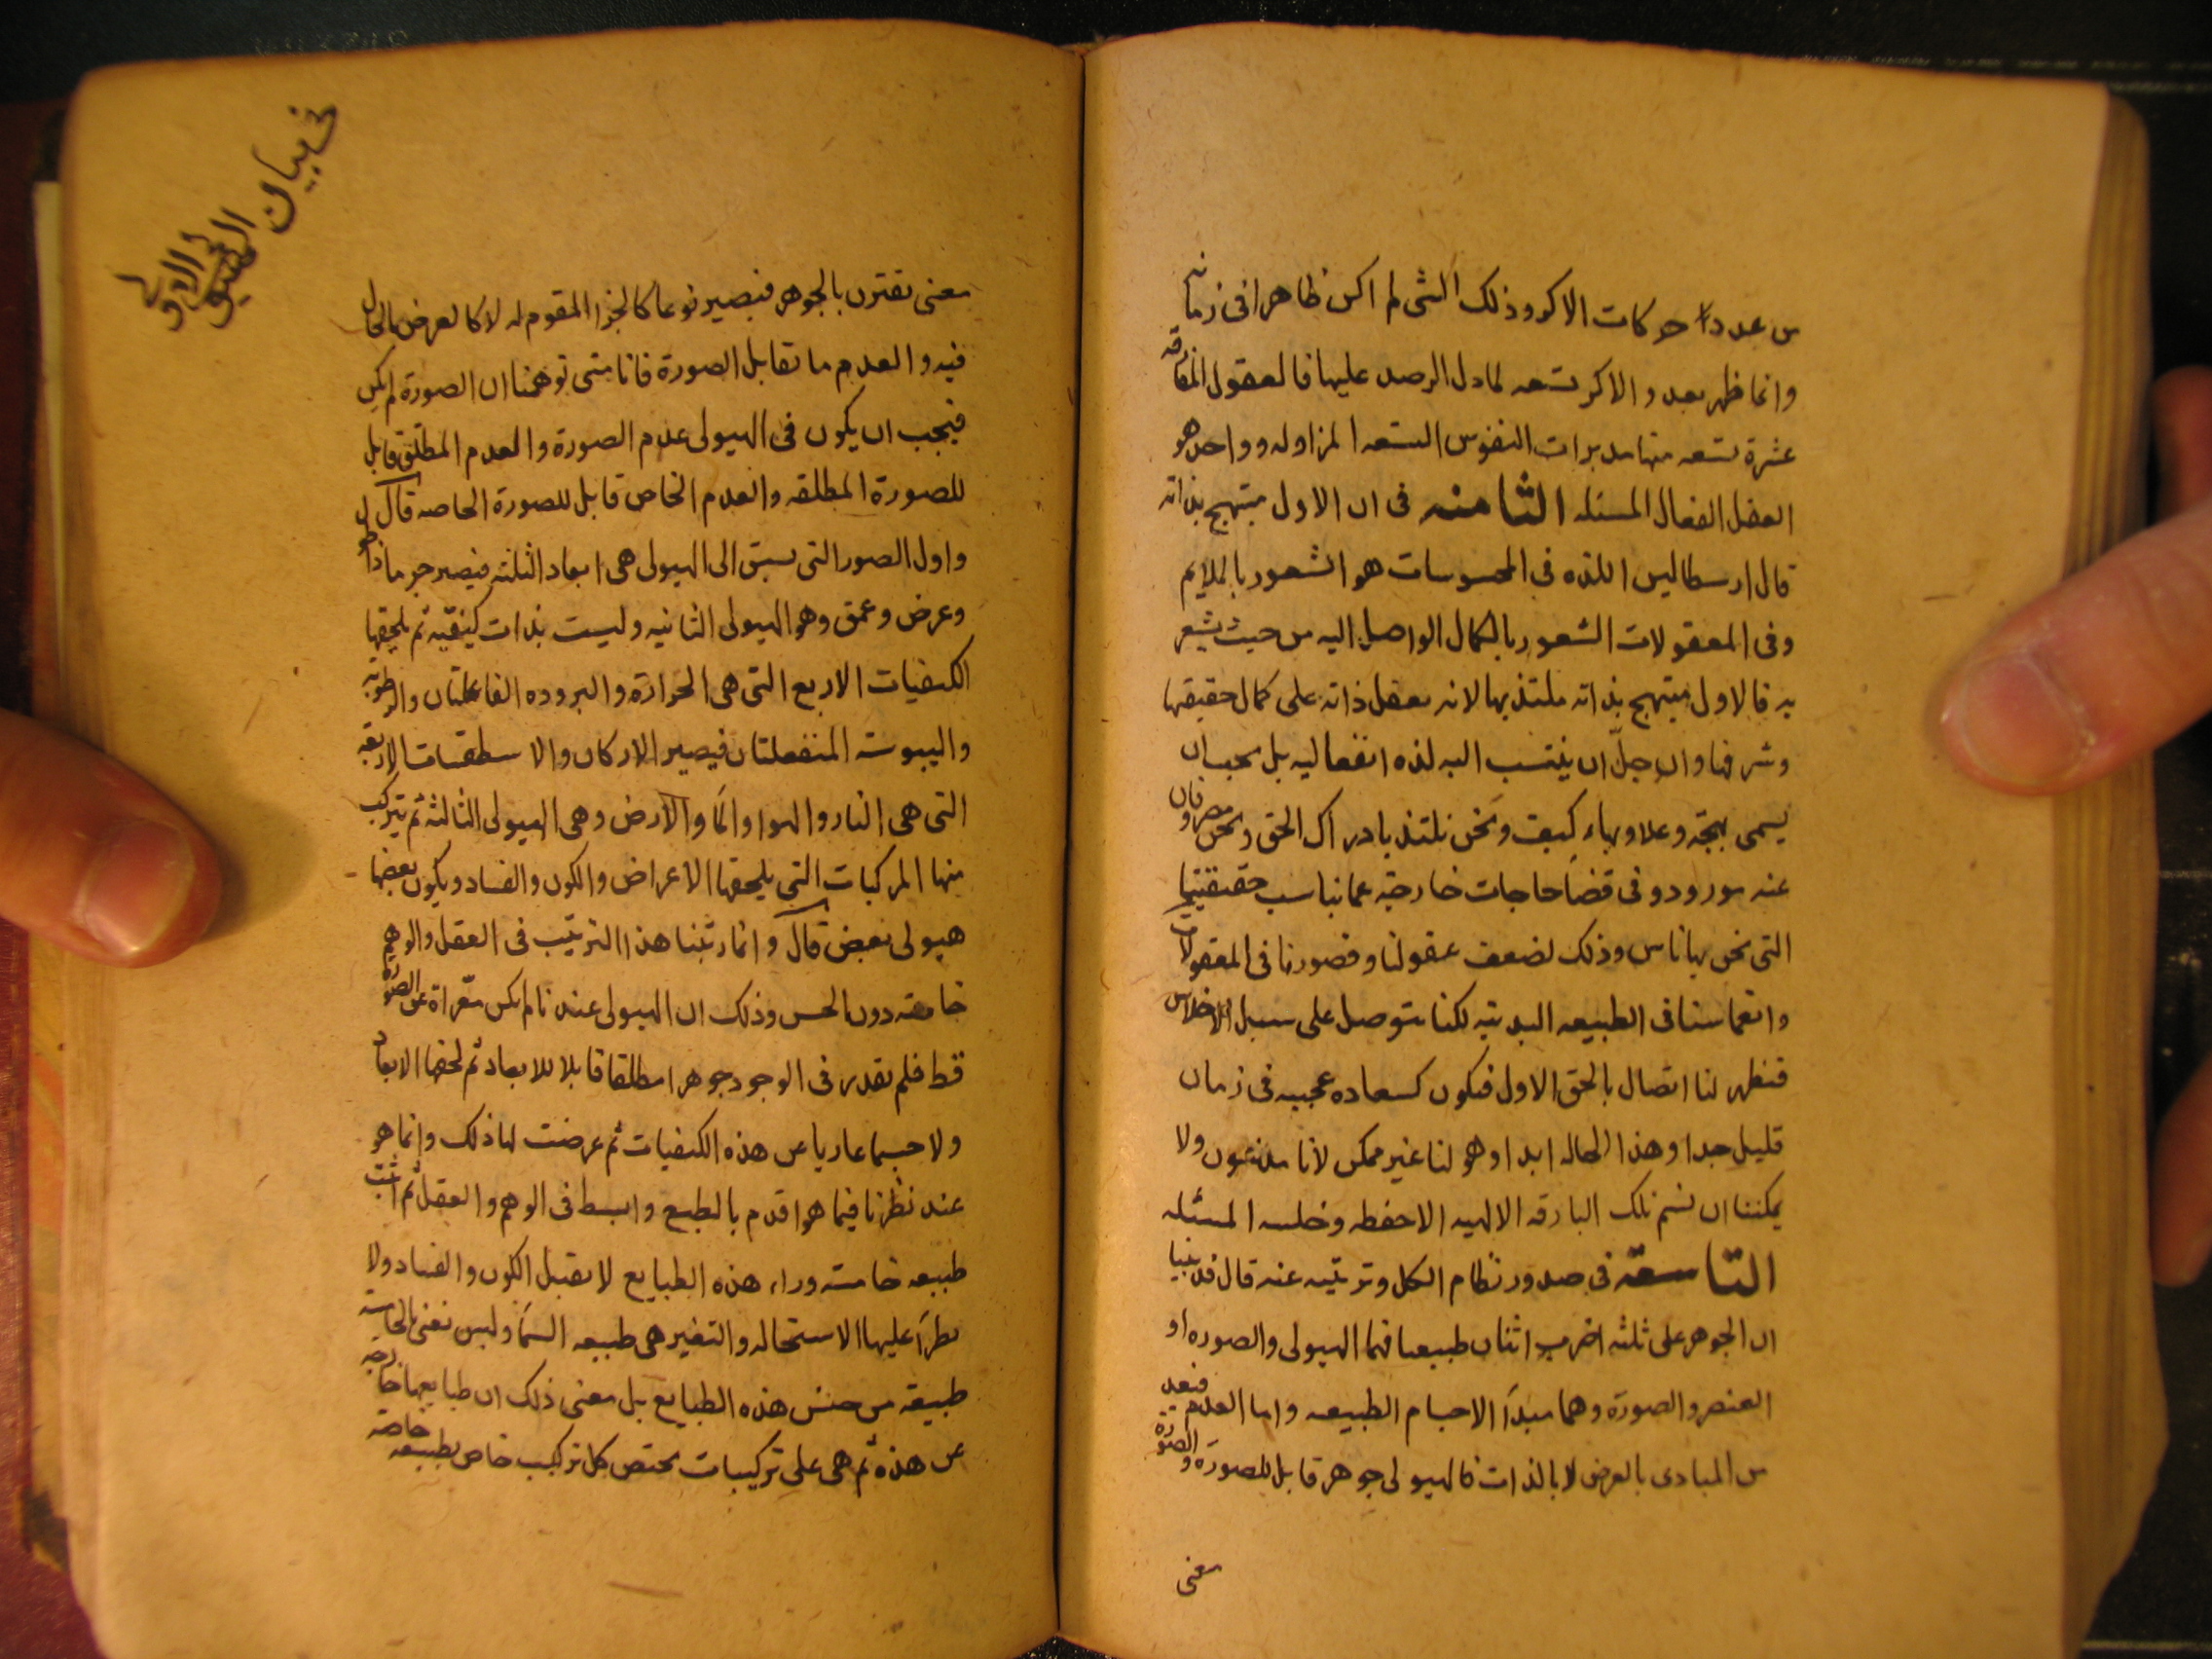 من عدد حركات الاكر وذلك الشى لم اكن ظاهرا فى زمانه
وانما ظهر بعد والاكر تسعه لما دل الرصد عليها فالعقول المفارقه
عشرة تسعه منها مدبرات النفوس التسعه المزاوله وواحد هو
العقل الفعال المسئله الثامنه فى ان الاول مبتهج بذاته
قال ارسطاليس اللذه فى المحسوسات هو الشعور بالملايم
وفى المعقولات الشعور بالكمال الواصل اليه من حيث يشعر
به فالاول مبتهج بذاته ملتذ بها لانه يعقل ذاته على كمال حقيقتها
وشرفها وان جلّ ان ينتسب اليه لذه انفعاليه بل يجب ان
يسمى بهجة وعلا وبهاء كيف ونحن نلتذ بادراك الحق ونحن مصروفان
عنه مورودو فى قضا حاجات خارجة عما يناسب حقيقتنا
التى نحن بها ناس وذلك لضعف عقولنا وقصورنا فى المعقولات
وانغماسنا فى الطبيعه البدنيه لكنا نتوصل على سبيل الاختلاس
فيظهر لنا اتصال بالحق الاول فيكون كسعاده عجيبه فى زمان
قليل جدا وهذا الحاله ابدا وهو لنا غير ممكن لانا مذنبون ولا
يمكننا ان نشم تلك البارقه الالهيه الا خطفه وخلسه المسئله
التاسعة فى صدور نظام الكل وترتيبه عنه قال قد بينا
ان الجوهر على ثلثه اضرب اثنان طبيعيا فهما الهيولى والصوره او
العنصر والصورة وهما مبدآ الاجسام الطبيعيه واما العدم فيعد
من المبادى بالعرض لا بالذات فالهيولى جوهر قابل للصورة والصورة
معنى
فى بيان الهيولى الاولى
معنى يقترن بالجوهر فيصير نوعا كالجزا المقوم له لا كالعرض الحال
فيه والعدم ما يقابل الصورة فانا متى توهمنا ان الصورة لم يكن
فيجب ان يكون فى الهيولى عدم الصورة والعدم المطلق قابل
للصورة المطلقه والعدم الخاص قابل للصورة الخاصه قال
واول الصور التى يسبق الى الهيولى هى ابعاد الثلثه فيصير جرما ذا طول
وعرض وعمق وهو الهيولى الثانيه وليست بذات كيفيّه ثم يلحقها
الكيفيات الاربع التى هى الحرارة والبروده الفاعلتان والرطوبه
واليبوسة المنفعلتان فيصير الاركان والاسطقسات الاربعه
التى هى النار والهوا والما والارض وهى الهيولى الثالثه ثم يتركب
منها المركبات التى يلحقها الاعراض والكون والفساد ويكون بعضها
هيولى بعض قال وانما رتبنا هذا الترتيب فى العقل والوهم
خاصه دون الحس وذلك ان الهيولى عندنا لم يكن معراة عن الصورة
قط فلم يقدر فى الوجود جوهرا مطلقا قابلا للابعاد ثم لحقها الابعاد
ولا جسما عاريا عن هذه الكيفيات ثم عرضت لها ذلك وانما هو
عند نظرنا فيما هو اقدم بالطبع وابسط فى الوهم والعقل ثم اثبت
طبيعه خامسه وراء هذه الطبايع لا يقبل الكون والفساد ولا
يطرأ عليها الاستحاله والتغير هى طبيعه السما وليس نعنى بالخامسة
طبيعة من جنس هذه الطبايع بل معنى ذلك ان طبايعها خارجه
عن هذه ثم هى على تركيبات يختص كل تركيب خاص بطبيعه خاصه